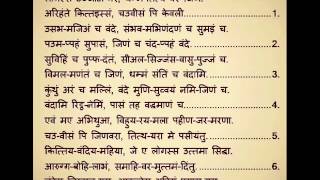 अरिहंते कित्तइस्सं, चउवीसं पि केवली......1.
उसभ-मजिअं च वंदे, संभव-मभिणंदणं च सुमइं च.
पउम-प्पहं सुपासं, जिणं च चंद-प्पहं वंदे......2.
सुविहिं च पुप्फ-दंतं, सीअल-सिज्जंस-वासु-पुज्जं च.
विमल-मणंतं च जिणं, धम्मं संतिं च वंदामि......3.
कुंथुं अरं च मल्लिं, वंदे मुणि-सुव्वयं नमि-जिणं च.
वंदामि रिट्ठ-नेमिं, पासं तह वद्धमाणं च......4.
एवं मए अभिथुआ, विहुय-रय-मला पहीण-जर-मरणा.
चउ-वीसं पि जिणवरा, तित्थ-यरा मे पसीयंतु......5.
कित्तिय-वंदिय-महिया, जे ए लोगस्स उत्तमा सिद्धा.
आरुग्ग-बोहि-लाभं, समाहि-वर-मुत्तमं-दिंतु......6.